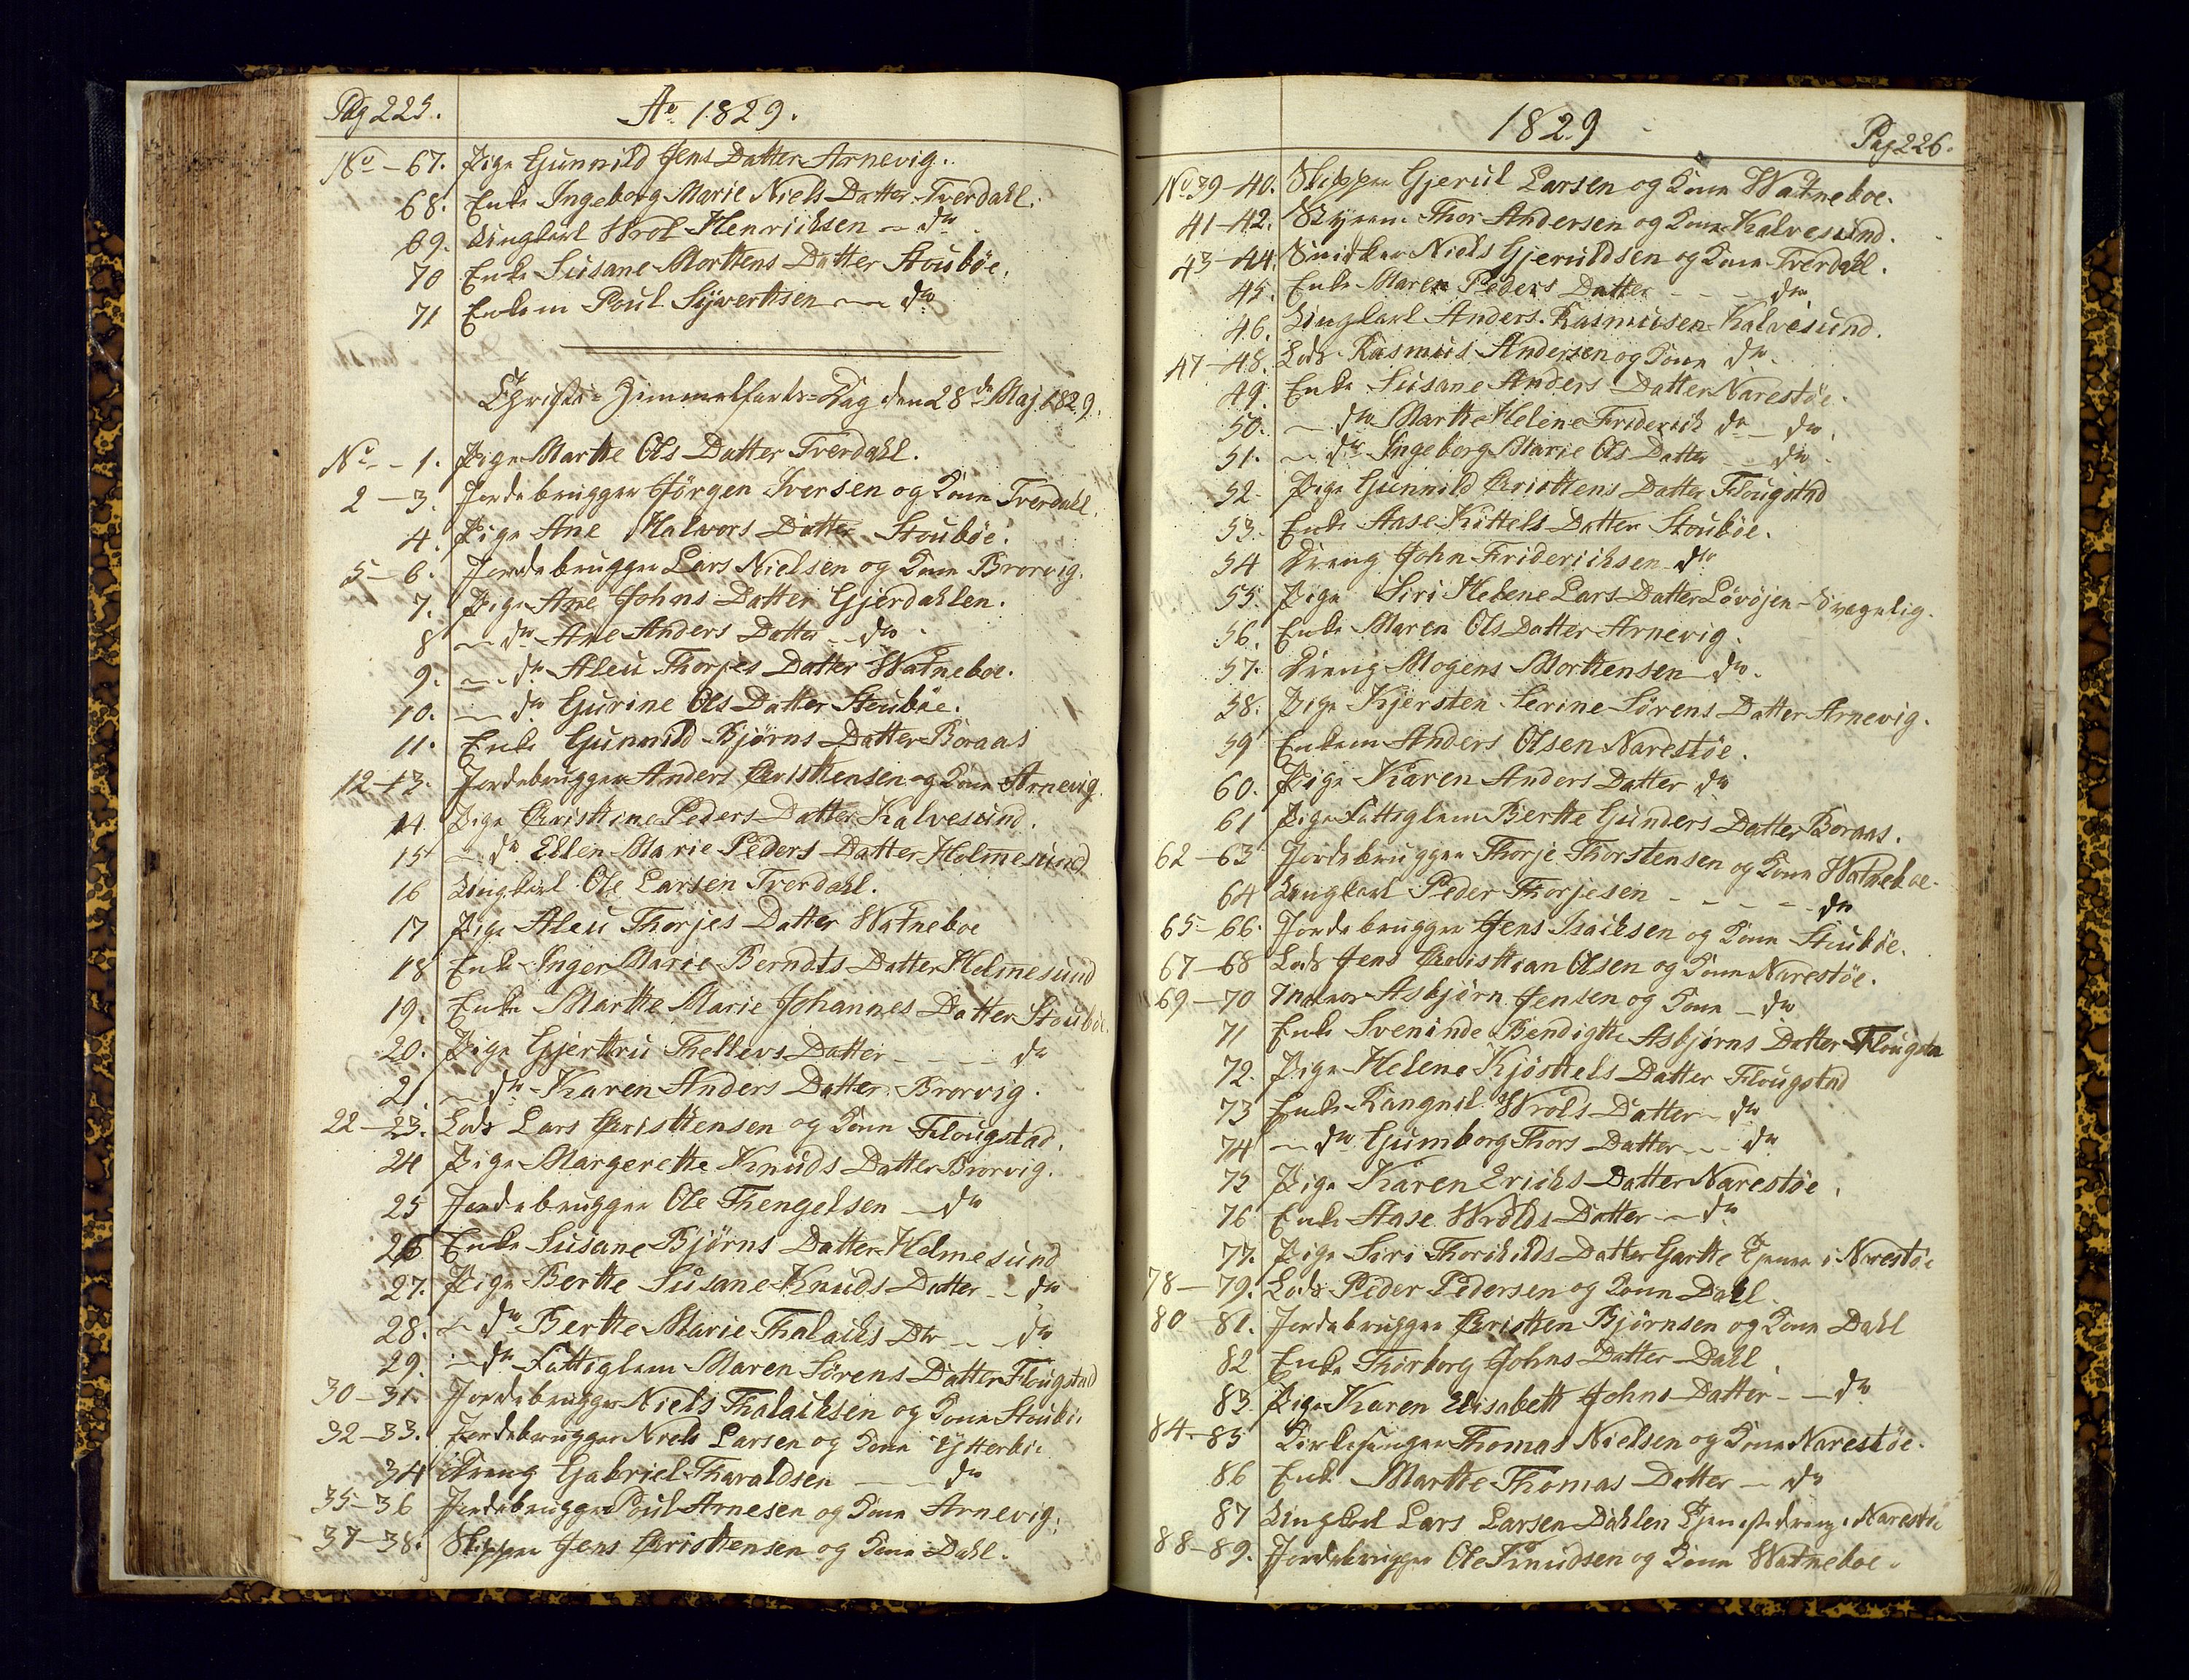 Pag 225.
Ao 1829.
No - 67. Pige Gunnild Jens Datter Arnevig.
68. Enke Ingeborg Marie Niels Datter Tverdahl.
69. Ungkarl Wrol Henriksen - do
70 Enke Susane Morttens Datter Stoubøe.
71 Enkem Poul Syvertsen - do
Christi Himmelfarts-Dag den 28de Maj 1829.
No - 1. Pige Marthe Ols Datter Tverdahl.
2 - 3. Jordebrugger Jørgen Iversen og Kone Tverdahl.
4. Pige Ane Halvors Datter Stoubøe.
5 - 6. Jordebrugger Lars Nielsen og Kone Brorvig.
7. Pige Ane Johns Datter Gjerdahlen.
8 - do Ane Anders Datter - do
9. - do Aleu Thorjes Datter Watneboe.
10. - do Gurine Ols Datter Stoubøe.
11. Enke Gunnild Bjørns Datter Boraas
12-13. Jordebrugger Anders Christensen og Kone Arnevig.
14 Pige Christine Peders Datter Kalvesund.
15 - do Ellen Marie Peders Datter Holmesund
16 Ungkarl Ole Larsen Tverdahl.
17 Pige Aleu Thorjes Datter Watneboe
18 Enke Inger Marie Berndts Datter Holmesund
19. Enke Marthe Marie Johannes Datter Stoubøe.
20. Pige Gjertru Thellevs Datter - - - do
21. - do Karen Anders Datter Brorvig.
22 - 23. Lods Lars Christensen og Kone Flougstad.
24 Pige Margerethe Knuds Datter Brorvig.
25 Jordebrugger Ole Thengelsen - do
26 Enke Susane Bjørns Datter Holmesund
27. Pige Berthe Susane Knuds Datter - - do
28. - do Berthe Marie Thalacks Dtr - - do
29. - do Fattiglem Maren Sørens Datter Flougstad
30 - 31. Jordebrugger Niels Thalacksen og Kone Stoubøe
32 - 33. Jordebrugger Niels Larsen og Kone Ytterbøe
34 Dreng Gabriel Tharaldsen - - do
35 - 36 Jordebrugger Poul Arnesen og Kone Arnevig.
37 - 38. Skipper Jens Christensen og Kone Dahl.
1829
Pag 226.
No 39 - 40. Skipper Gjerul Larsen og Kone Watneboe.
41 - 42. Styrm. Thor Andersen og Kone Kalvesund.
43 - 44. Snidker Niels Gjeruldsen og Kone Tverdahl.
45. Enke Maren Peders Datter - - - do
46. Ungkarl Anders Rasmusen Kalvesund.
47 - 48. Lods Rasmus Andersen og Kone do
49. Enke Susane Anders Datter Narestøe.
50. - do Marthe Helene Friderich do - do
51. - do Ingeborg Marie Ols Datter - do
52. Pige Gunnild Christens Datter Flougstad
53. Enke Aase Kittels Datter Stoubøe.
54 Dreng John Frideriksen do
55. Pige Siri Helene Lars Datter Løvøjen - Svagelig.
56. Enke Maren Ols Datter Arnevig.
57. Dreng Mogens Morthensen do
58. Pige Kjersten Serine Sørens Datter Arnevig.
59 Enkem Anders Olsen Narestøe.
60. Pige Karen Anders Datter do
61 Pige Fattiglem Berthe Gunders Datter Boraas.
62 - 63 Jordebrugger Thorje Thorstensen og Kone Watneboe.
64 Ungkarl Peder Thorjesen - - - - do
65 - 66. Jordebrugger Jens Isacksen og Kone Stoubøe.
67 - 68 Lods Jens Christian Olsen og Kone Narestøe.
69 - 70 Asbjørn Jensen og Kone - do
71 Enke Sveninde Bendigthe Asbjørns Datter Flougsta
72. Pige Helene Kjøstels Datter Flougstad
73 Enke Rangnil Wrols Datter - do
74 - do Gumborg Thors Datter - - do
75 Pige Karen Ericks Datter Narestøe.
76 Enke Aase Wrolds Datter - do
77. Pige Siri Thorkilds Datter Garthe Tjener i Narestøe
78 - 79. Lods Peder Pedersen og Kone Dahl.
80 - 81. Jordebrugger Christen Bjørnsen og Kone Dahl
82 Enke Thorborg Johns Datter Dahl
83. Pige Karen Elisabeth Johns Datter - - do
84. - 85 Kirkesanger Thomas Nielsen og Kone Narestøe.
86 Enke Marthe Thomas Datter - do
87 Ungkarl Lars Larsen Dahlen Tjenestedreng i Narestøe
88 - 89. Jordebrugger Ole Knudsen og Kone Watneboe.